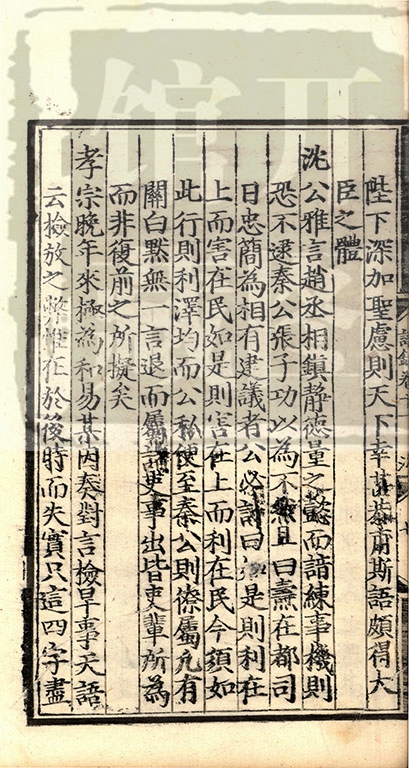 陛下深加聖慮則天下幸甚恭肅斯語頗得大
臣之體
沈公雅言趙丞相鎮靜德量之懿而諳練事機則
恐不逮秦公張子功以為不然且曰燾在都司
日忠簡為相有建議者公必詢曰是則利在
上而害在民如是則害在上而利在民今須如
此行則利澤均而公私便至秦公則僚屬凡有
關白黙無一言退而屬諸吏事出皆吏輩所為
而非復前之所擬矣
孝宗晚年來極為和易某因奏對言檢旱事天語
云檢放之弊惟在於後時而失實只這四字盡